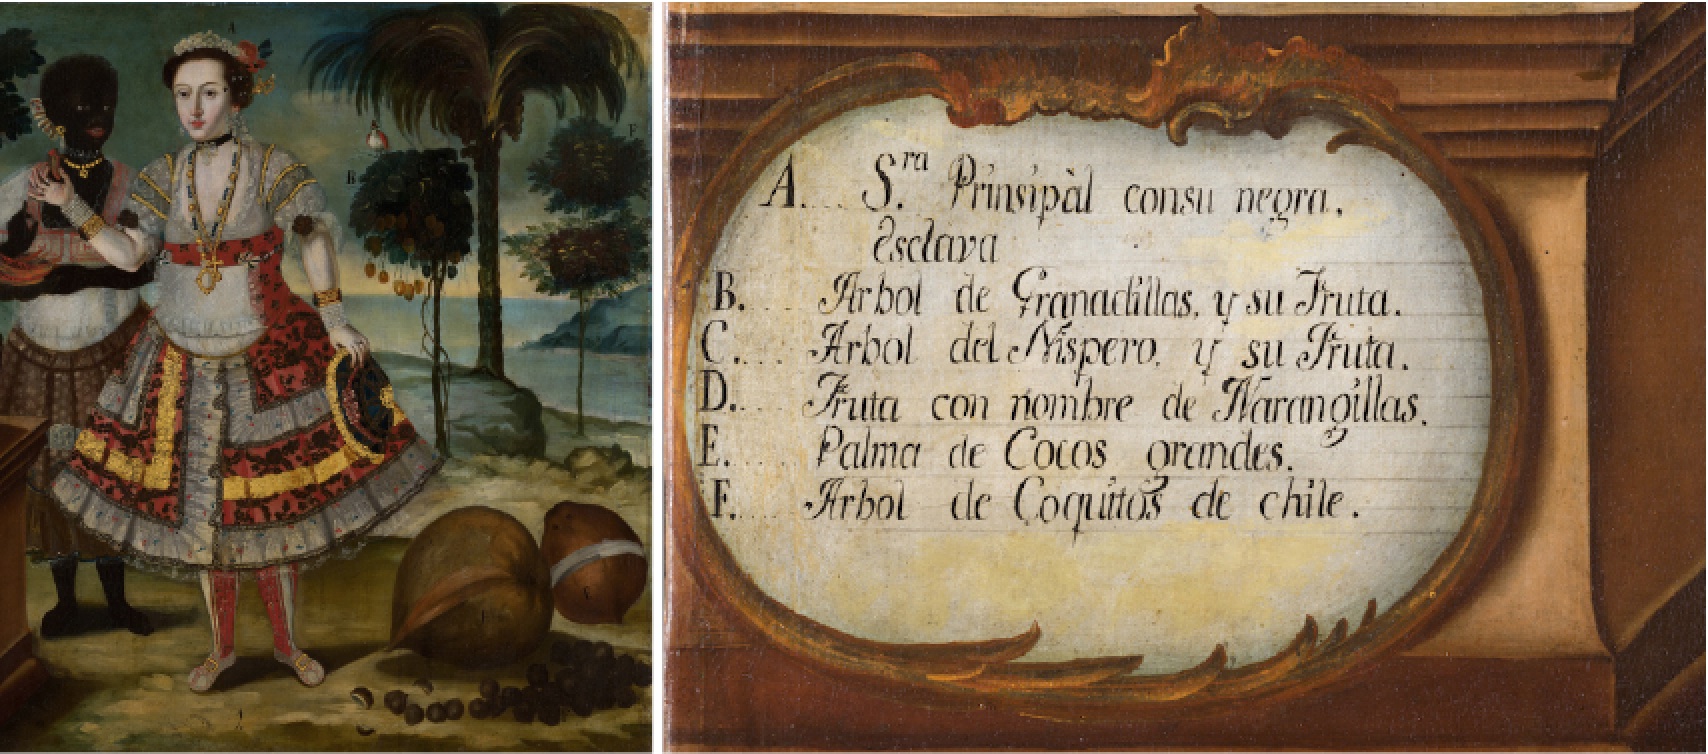 A
B
F
A.... S.ra Prinsipàl consu negra.
Esclava
B.... Arbol de Granadillas, y su Fruta.
C.... Arbol del Nispero, y su Fruta.
D.... Fruta con nombre de Narangillas.
E..... Palma de Cocos grandes.
F..... Arbol de Coquitos de chile.